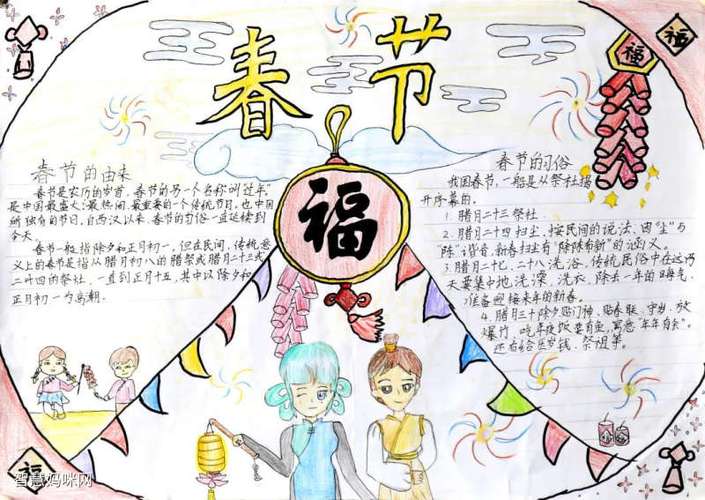 春节
福
福
春节的由来
春节是农历的岁首，春节的另一个名称叫过年，
是中国最盛大、最热闹、最重要的一个传统节日，也中国
所独有的节日，自西汉以来，春节的习俗一直延续到
今天
春节一般指除夕和正月初一，但在民间，传统意
义上的春节是指从腊月初八的腊祭或腊月二十三或
二十四的祭灶，一直到正月十五，其中以除夕和
正月初一为高潮。
福
春节的习俗
我国春节，一般是从祭灶揭
开序幕的。
1. 腊月二十三祭灶
2. 腊月二十四扫尘，按民间的说法，因“尘”与
“陈”谐音，新春扫尘有“除陈布新”的涵义。
3. 腊月二十七、二十八洗浴、传统民俗中在这两
天要集中地洗澡、洗衣、除去一年的晦气
准备迎接来年的新春。
4. 腊月三十除夕贴门神、贴春联、守岁、放
爆竹、吃年夜饭要有鱼，寓意“年年有余”。
还有给压岁钱、祭祖等。
福
福
智慧妈咪网